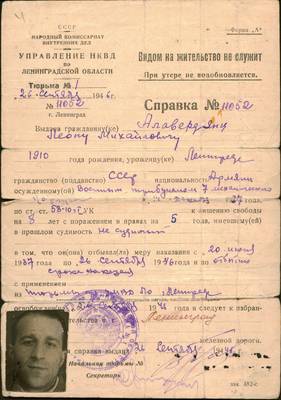 СССР
НАРОДНЫЙ КОМИССАРИАТ
ВНУТРЕННИХ ДЕЛ
УПРАВЛЕНИЕ НКВД
ПО
ЛЕНИНГРАДСКОЙ ОБЛАСТИ
Тюрьма № 1
26 Сентября 1946 г.
№ 11052
г. Ленинград
Форма „А“
Видом на жительство не служит
При утере не возобновляется.
Справка № 11052
Выдана гражданину(ке) Алавердянц
Леону Михайловичу
1910 года рождения, уроженцу(ке)
гражданство (подданство) СССР национальность
осужденному(ой) Военным трибуналом 7
по ст. ст. 58-10 УК к лишению свободы
на 8 лет с поражением в правах на 5 годов, имевшему(ей)
в прошлом судимость не судимый
в том, что он(она) отбывал(а) меру наказания с 20 июня
1937 года по 26 Сентября 1946 года и по отбытии
срока наказания
с применением
из тюрьмы НКВД
и следует к избран-
железной дорогой.
справка выдана 26 Сентября
Начальник тюрьмы №
Секретарь